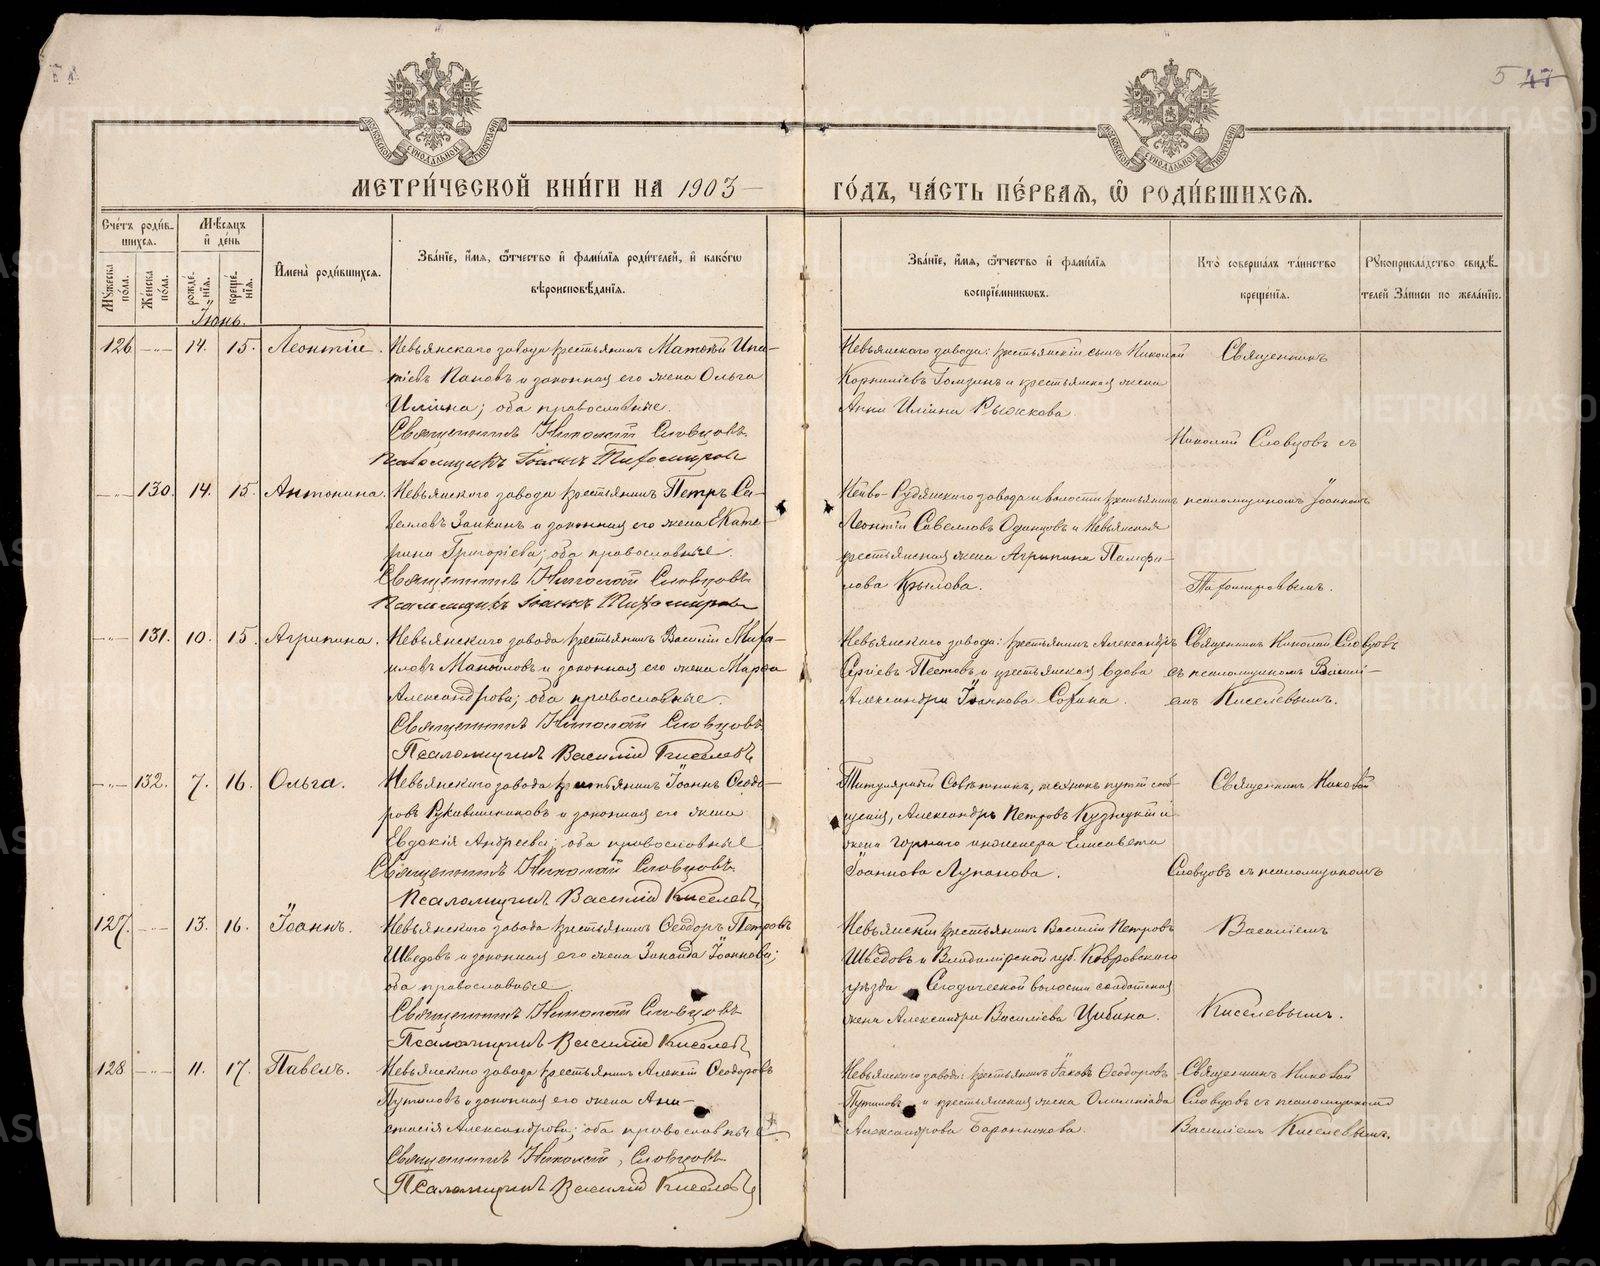 5 47
МОСКОВСКОЙ СѴНОДАЛЬНОЙ ТИПОГРАФІИ
МОСКОВСКОЙ СѴНОДАЛЬНОЙ ТИПОГРАФІИ
МЕТРИ́ЧЕСКОЙ КНИ́ГИ НА 1903
ГО́ДЪ, ЧА́СТЬ ПЕ́РВАѦ, Ѡ҆ РОДИ́ВШИХСѦ.
Сче́тъ роди́в-
шихсѧ.
Мѣ́сѧцъ
и҆ де́нь
Мꙋ́жеска по́ла.
Же́нска по́ла.
рожде́нїѧ.
креще́нїѧ.
И҆мена̀ роди́вшихсѧ.
Зва́нїе, и҆́мѧ, ѻ҆́тчество и҆ фами́лїѧ роди́телей, и҆ како́гѡ
вѣроисповѣ́данїѧ.
Зва́нїе, и҆́мѧ, ѻ҆́тчество и҆ фами́лїѧ
воспрїе́мниковъ.
Кто̀ соверша́лъ та́инство
креще́нїѧ.
Рꙋкоприкла́дство свидѣ́-
телей за́писи по жела́нїю.
Іюнь.
126 —„— 14. 15. Леонтій.
Невьянскаго завода крестьянинъ Матѳей Ипа-
тіевъ Пановъ и законная его жена Ольга
Иліина; оба православные.
Священникъ Николай Словцовъ
Псаломщикъ Іоаннъ Тихомировъ
Невьянскаго завода: крестьянскій сынъ Николай
Корниліевъ Гомзинъ и крестьянская жена
Анна Иліина Рыжкова.
Священникъ
Николай Словцовъ съ
—„— 130. 14. 15. Антонина.
Невьянскаго завода крестьянинъ Петръ Са-
велловъ Заикинъ и законная его жена Екате-
рина Григоріева; оба православные.
Священникъ Николай Словцовъ
Псаломщикъ Іоаннъ Тихомировъ
Нейво-Рудянскаго завода и волости крестьянинъ
Леонтій Савелловъ Одинцовъ и Невьянская
крестьянская жена Агрипина Памфи-
лова Крылова.
псаломщикомъ Іоанномъ
Тихомировымъ.
—„— 131. 10. 15. Агрипина.
Невьянскаго завода крестьянинъ Василій Миха-
иловъ Манойловъ и законная его жена Марѳа
Александрова; оба православные.
Священникъ Николай Словцовъ
Псаломщикъ Василій Киселевъ
Невьянскаго завода: крестьянинъ Александръ
Сергіевъ Пестовъ и крестьянская вдова
Александра Іоаннова Сорина.
Священникъ Николай Словцовъ
съ псаломщикомъ Васил-
емъ Киселевымъ.
—„— 132. 7. 16. Ольга.
Невьянскаго завода крестьянинъ Іоаннъ Ѳеодо-
ровъ Рукавишниковъ и законная его жена
Евдокія Андреева; оба православные
Священникъ Николай Словцовъ
Псаломщикъ Василій Киселевъ
Титулярный Совѣтникъ, техникъ путей сооб-
щенія, Александръ Петровъ Кузнецкій и
жена горнаго инженера Елисавета
Іоаннова Лупанова.
Священникъ Николай
Словцовъ съ псаломщикомъ
127. —„— 13. 16. Іоаннъ.
Невьянскаго завода крестьянинъ Ѳеодоръ Петровъ
Шведовъ и законная его жена Зинаида Іоаннова;
оба православные.
Священникъ Николай Словцовъ
Псаломщикъ Василій Киселевъ
Невьянскій крестьянинъ Василій Петровъ
Шведовъ и Владимірской губ. Ковровскаго
уѣзда Сегодической волости солдатская
жена Александра Василіева Цибина.
Василіемъ
Киселевымъ.
128 —„— 11. 17. Павелъ.
Невьянскаго завода крестьянинъ Алексій Ѳеодоровъ
Путиловъ и законная его жена Ана-
стасія Александрова; оба православные.
Священникъ Николай Словцовъ
Псаломщикъ Василій Киселевъ
Невьянскаго завода: крестьянинъ Іаковъ Ѳеодоровъ
Путиловъ и крестьянская жена Олимпіада
Александрова Баранникова.
Священникъ Николай
Словцовъ съ псаломщикомъ
Василіемъ Киселевымъ.
METRIKI.GASO-URAL.RU